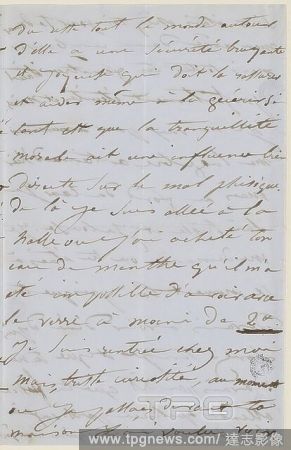 du reste tout le monde autour
d'elle a une sécurité bruyante
et joyeuse qui doit la rassurer
et aider même à la guérison si
tant est que la tranquillité
morale ait une influence bien
directe sur le mal phisique
de là je suis allée à la
halle où j'ai acheté ton
eau de menthe qu'il m'a
été impossible d'avoir avec
le verre à moins de 2
Je suis rentrée chez moi
mais toute au moment
où je
TPG
www.tpgnews.com / 達志影像